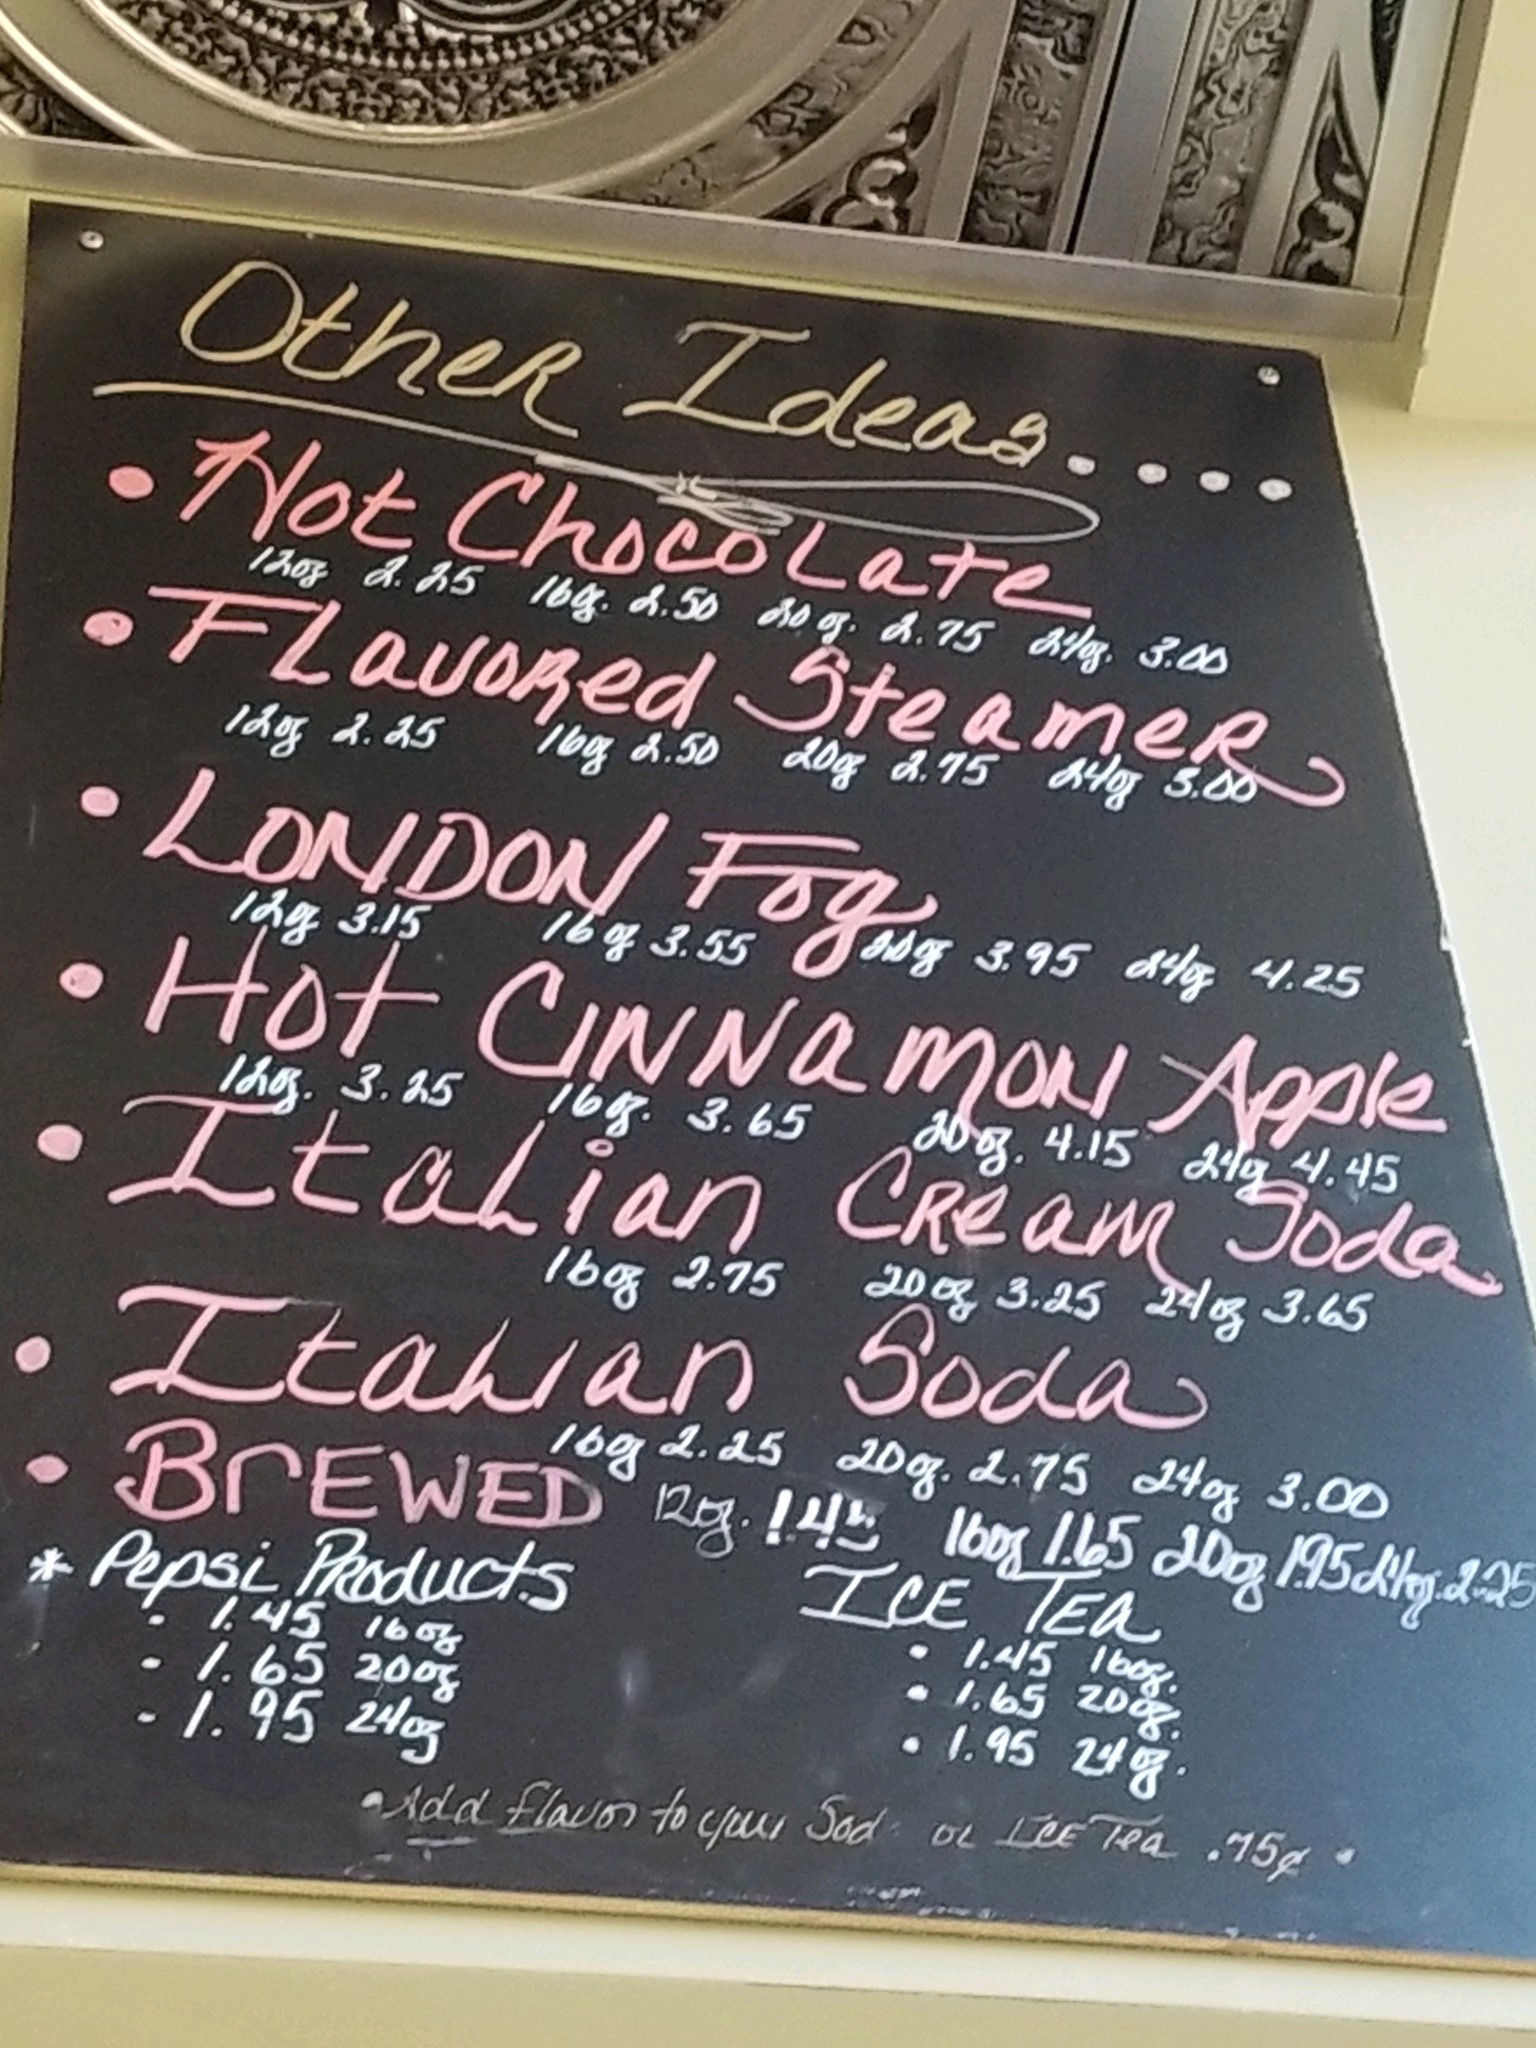 Other Ideas....
• Hot Chocolate
12oz 2.25 16oz. 2.50 20oz. 2.75 24oz. 3.00
• Flavored Steamer
12oz 2.25 16oz 2.50 20oz 2.75 24oz 3.00
• LONDON Fog
12oz 3.15 16oz 3.55 20oz 3.95 24oz 4.25
• Hot Cinnamon Apple
12oz. 3.25 16oz. 3.65 20oz. 4.15 24oz 4.45
• Italian Cream Soda
16oz 2.75 20oz 3.25 24oz 3.65
• Italian Soda
16oz 2.25 20oz. 2.75 24oz 3.00
• BrEWED 12oz. 1.45 16oz 1.65 20oz 1.95 24oz. 2.25
* Pepsi Products
- 1.45 16oz
- 1.65 20oz
- 1.95 24oz
ICE TEA
• 1.45 16oz.
• 1.65 20oz.
• 1.95 24oz.
• Add Flavor to your Sod or ICE Tea .75¢ •